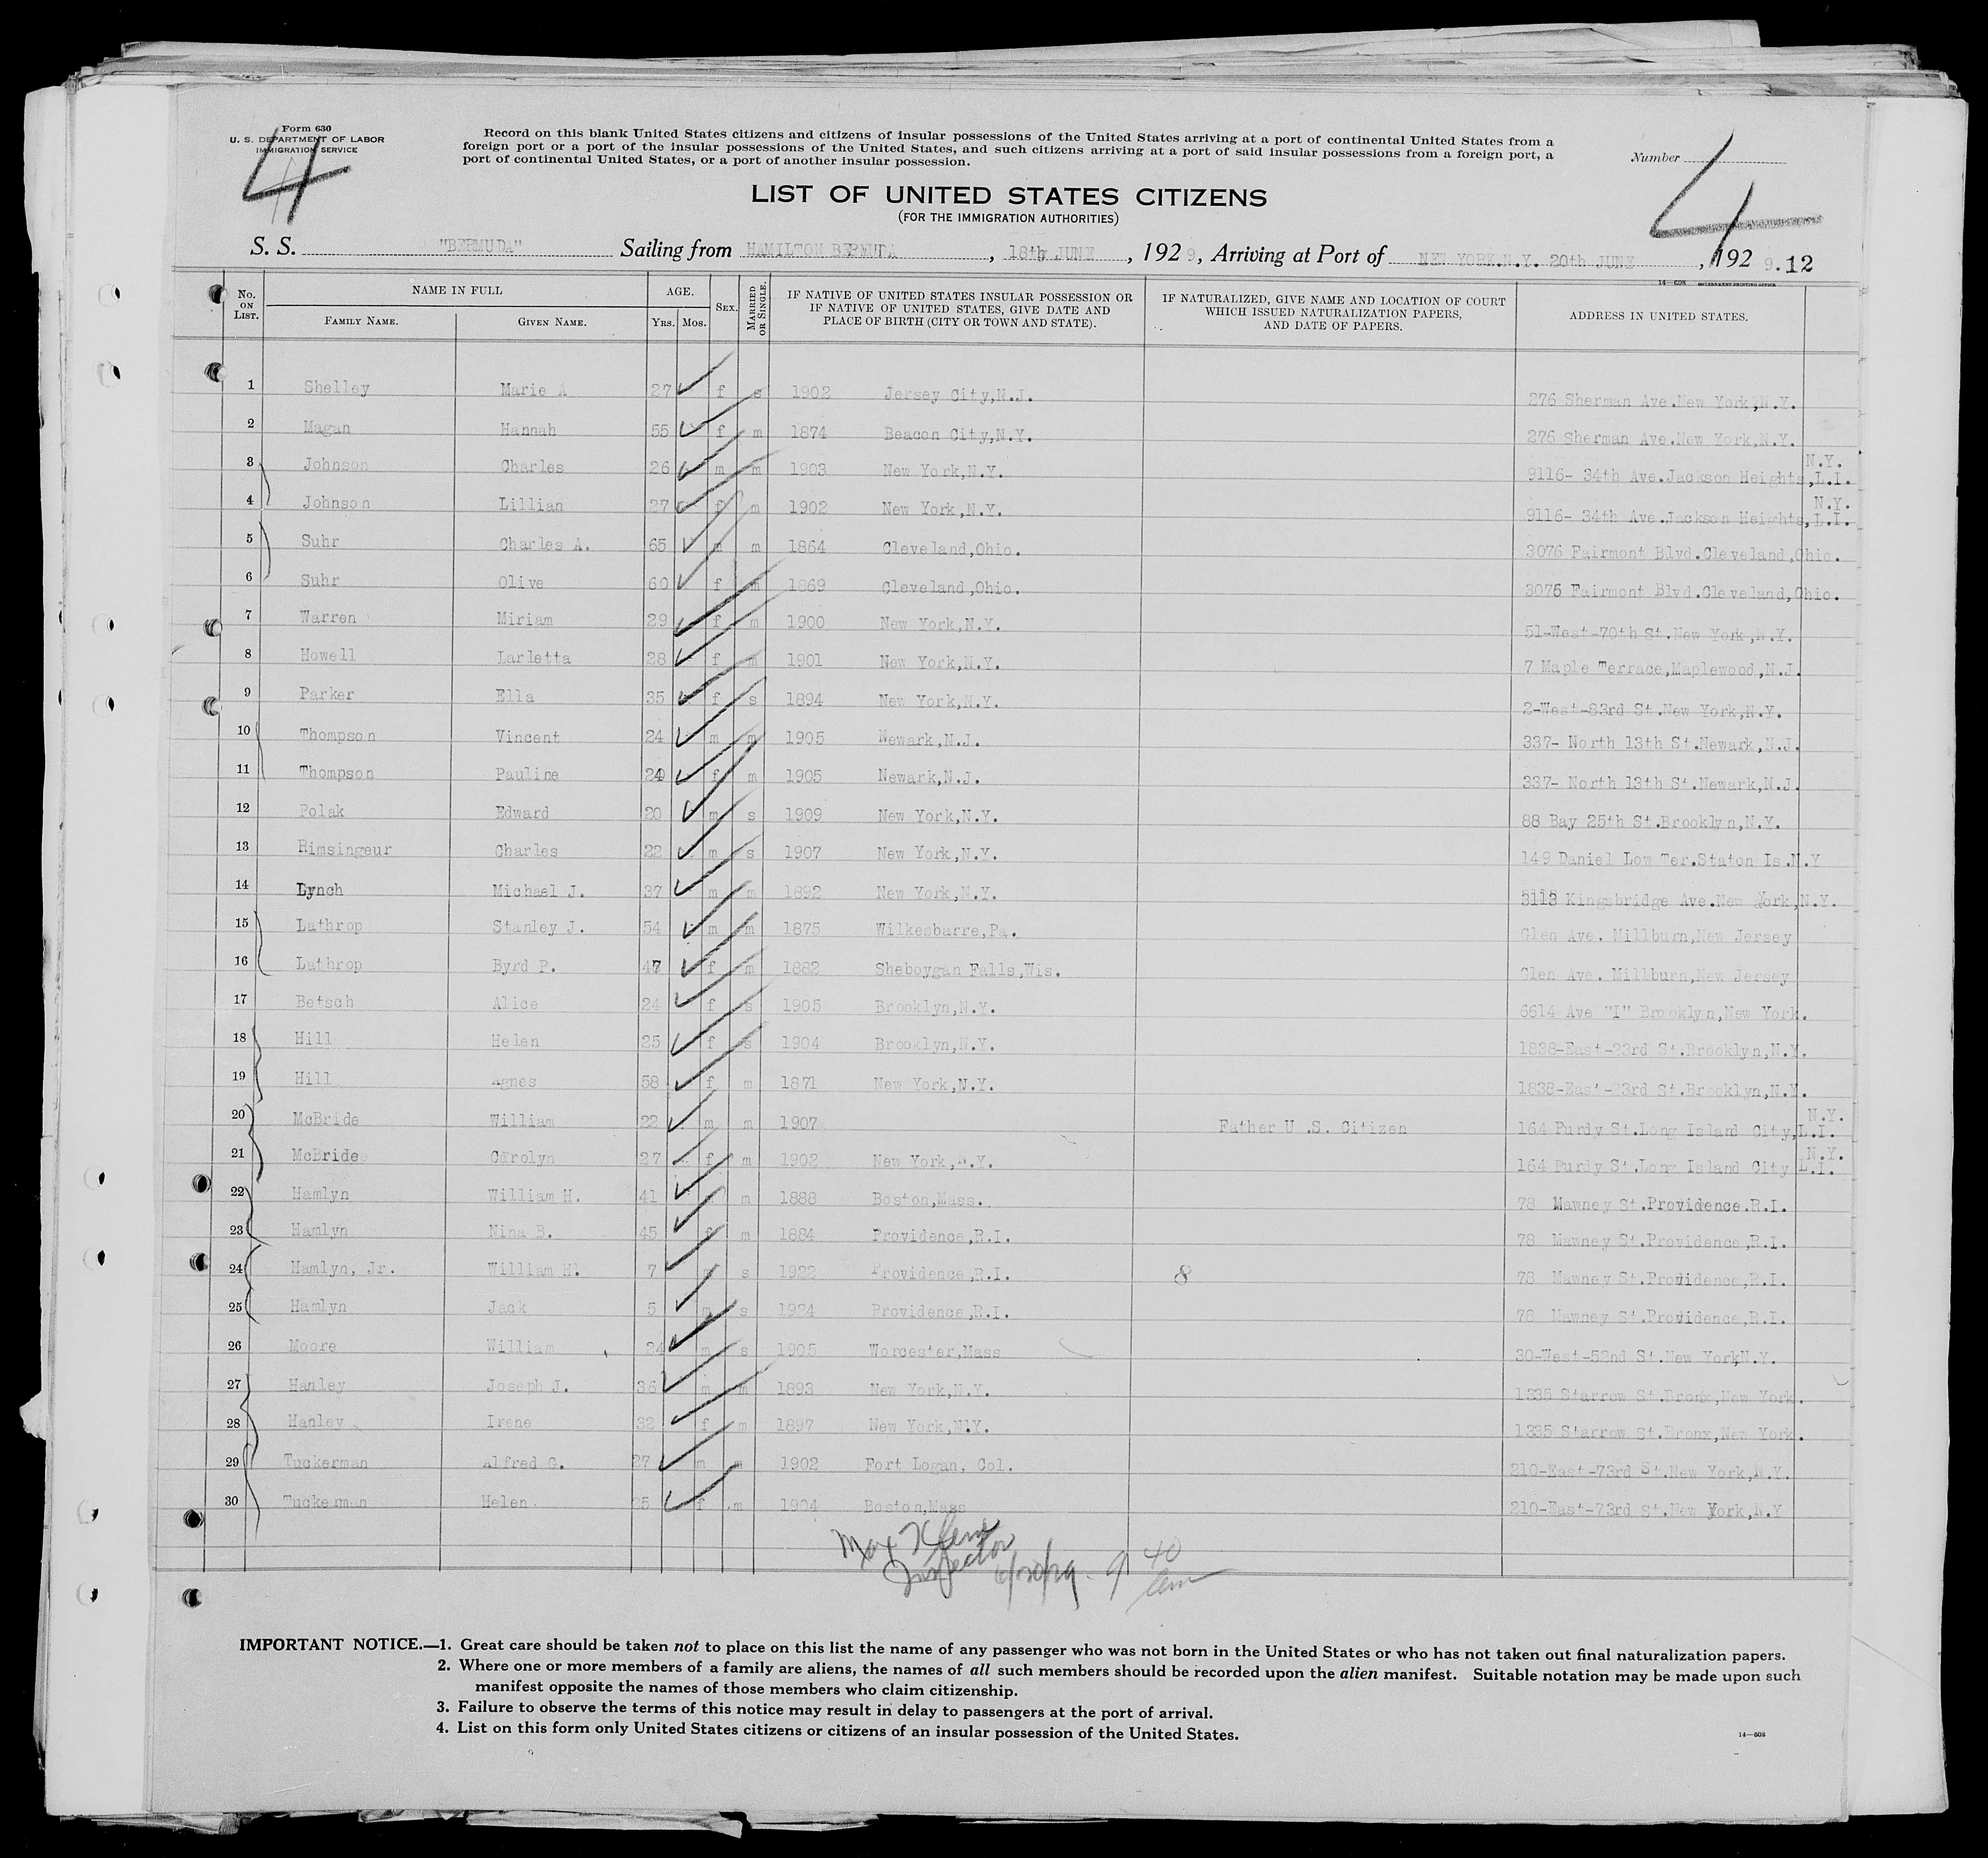 Form 630
U. S. DEPARTMENT OF LABOR
IMMIGRATION SERVICE
4
Record on this blank United States citizens and citizens of insular possessions of the United States arriving at a port of continental United States from a
foreign port or a port of the insular possessions of the United States, and such citizens arriving at a port of said insular possessions from a foreign port, a
port of continental United States, or a port of another insular possession.
Number
4
LIST OF UNITED STATES CITIZENS
(FOR THE IMMIGRATION AUTHORITIES)
S. S. "BERMUDA" Sailing from HAMILTON BERMUDA, 18th JUNE, 1929, Arriving at Port of NEW YORK.N.Y. 20th JUNE, 1929.12
14—608 GOVERNMENT PRINTING OFFICE
No. ON LIST. NAME IN FULL FAMILY NAME. GIVEN NAME. AGE. Yrs. Mos. SEX. MARRIED OR SINGLE. IF NATIVE OF UNITED STATES INSULAR POSSESSION OR IF NATIVE OF UNITED STATES, GIVE DATE AND PLACE OF BIRTH (CITY OR TOWN AND STATE). IF NATURALIZED, GIVE NAME AND LOCATION OF COURT WHICH ISSUED NATURALIZATION PAPERS, AND DATE OF PAPERS. ADDRESS IN UNITED STATES.
1 Shelley Marie A 27 f s 1902 Jersey City,N.J. 276 Sherman Ave.New York,N.Y.
2 Magan Hannah 55 f m 1874 Beacon City,N.Y. 276 Sherman Ave.New York,N.Y.
3 Johnson Charles 26 m m 1903 New York,N.Y. 9116- 34th Ave.Jackson Heights,L.I. N.Y.
4 Johnson Lillian 27 f m 1902 New York,N.Y. 9116- 34th Ave.Jackson Heights,L.I. N.Y.
5 Suhr Charles A. 65 m m 1864 Cleveland,Ohio. 3076 Fairmont Blvd.Cleveland,Ohio.
6 Suhr Olive 60 f m 1869 Cleveland,Ohio. 3076 Fairmont Blvd.Cleveland,Ohio.
7 Warren Miriam 29 f m 1900 New York,N.Y. 51-West-70th St.New York,N.Y.
8 Howell Larletta 28 f m 1901 New York,N.Y. 7 Maple Terrace,Maplewood,N.J.
9 Parker Ella 35 f s 1894 New York,N.Y. 2-West-83rd St.New York,N.Y.
10 Thompson Vincent 24 m m 1905 Newark,N.J. 337- North 13th St.Newark,N.J.
11 Thompson Pauline 24 f m 1905 Newark,N.J. 337- North 13th St.Newark,N.J.
12 Polak Edward 20 m s 1909 New York,N.Y. 88 Bay 25th St.Brooklyn,N.Y.
13 Rimsingeur Charles 22 m s 1907 New York,N.Y. 149 Daniel Low Ter.Staton Is.N.Y
14 Lynch Michael J. 37 m m 1892 New York,N.Y. 3113 Kingsbridge Ave.New York,N.Y.
15 Lathrop Stanley J. 54 m m 1875 Wilkesbarre,Pa. Glen Ave. Millburn,New Jersey
16 Lathrop Byrd P. 47 f m 1882 Sheboygan Falls,Wis. Glen Ave. Millburn,New Jersey
17 Betsch Alice 24 f s 1905 Brooklyn,N.Y. 6614 Ave "I" Brooklyn,New York.
18 Hill Helen 25 f s 1904 Brooklyn,N.Y. 1838-East-23rd St.Brooklyn,N.Y.
19 Hill Agnes 58 f m 1871 New York,N.Y. 1838-East-23rd St.Brooklyn,N.Y.
20 McBride William 22 m m 1907 Father U .S. Citizen 164 Purdy St.Long Island City,L.I. N.Y.
21 McBride Carolyn 27 f m 1902 New York,N.Y. 164 Purdy St.Long Island City L.I. N.Y.
22 Hamlyn William H. 41 m 1888 Boston,Mass. 78 Mawney St.Providence.R.I.
23 Hamlyn Nina B. 45 f m 1884 Providence,R.I. 78 Mawney St.Providence,R.I.
24 Hamlyn, Jr. William H. 7 m s 1922 Providence,R.I. 8 78 Mawney St.Providence,R.I.
25 Hamlyn Jack 5 m s 1924 Providence,R.I. 78 Mawney St.Providence,R.I.
26 Moore William 24 m s 1905 Worcester,Mass 30-West-52nd St.New York,N.Y.
27 Hanley Joseph J. 36 m m 1893 New York,N.Y. 1335 Starrow St.Bronx,New York.
28 Hanley Irene 32 f m 1897 New York,N.Y. 1335 Starrow St.Bronx,New York.
29 Tuckerman Alfred G. 27 m m 1902 Fort Logan, Col. 210-East-73rd St.New York,N.Y.
30 Tuckerman Helen 25 f m 1904 Boston,Mass 210-East-73rd St.New York,N.Y
Max Klein
Inspector 6/20/29 - 9 40 am
IMPORTANT NOTICE.—1. Great care should be taken not to place on this list the name of any passenger who was not born in the United States or who has not taken out final naturalization papers.
2. Where one or more members of a family are aliens, the names of all such members should be recorded upon the alien manifest. Suitable notation may be made upon such
manifest opposite the names of those members who claim citizenship.
3. Failure to observe the terms of this notice may result in delay to passengers at the port of arrival.
4. List on this form only United States citizens or citizens of an insular possession of the United States.
14—608